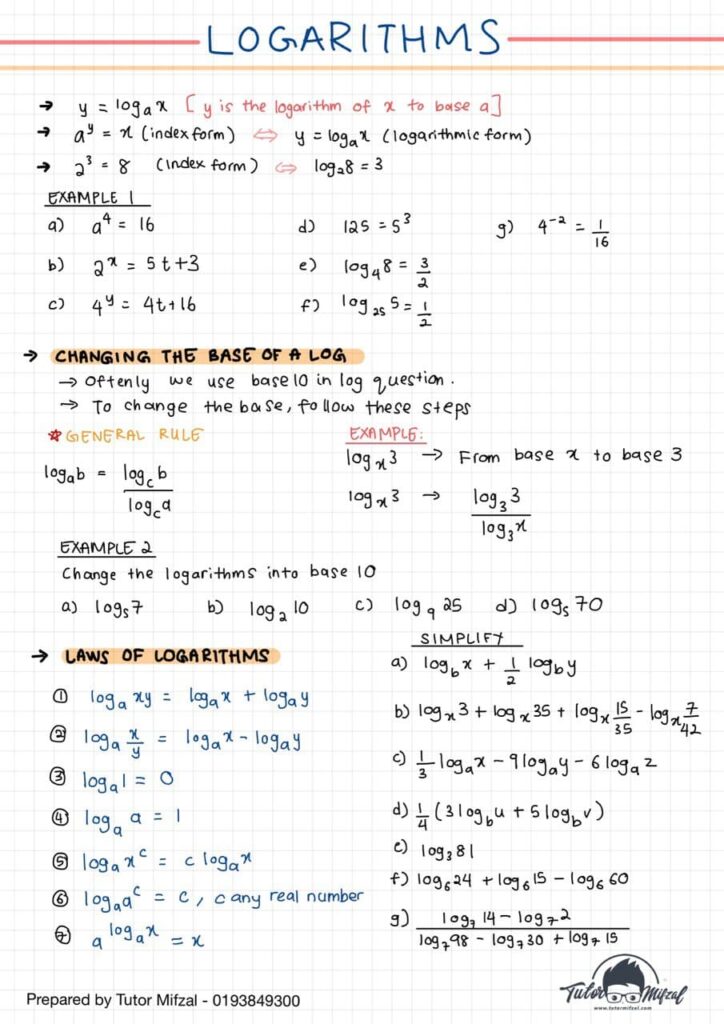 LOGARITHMS
→ y = logₐx [y is the logarithm of x to base a]
→ a^y = x (index form) ⇔ y = logₐx (logarithmic form)
→ 2³ = 8 (Index form) ⇔ log₂8 = 3
EXAMPLE 1
a) a⁴ = 16 d) 125 = 5³ g) 4⁻² = 1/16
b) 2^x = 5t+3 e) log₄8 = 3/2
c) 4^y = 4t+16 f) log₂₅5 = 1/2
→ CHANGING THE BASE OF A LOG
→ Oftenly we use base 10 in log question.
→ To change the base, follow these steps
☆GENERAL RULE
log_a b = log_c b / log_c a
EXAMPLE:
log_x 3 → From base x to base 3
log_x 3 → log₃3 / log₃x
EXAMPLE 2
Change the logarithms into base 10
a) log₅7 b) log₂10 c) log₉25 d) log₅70
→ LAWS OF LOGARITHMS
① logₐxy = logₐx + logₐy
② logₐ x/y = logₐx - logₐy
③ logₐ1 = 0
④ logₐa = 1
⑤ logₐx^c = c logₐx
⑥ logₐa^c = c, c any real number
⑦ a^(logₐx) = x
SIMPLIFY
a) log_b x + 1/2 log_b y
b) log_x 3 + log_x 35 + log_x 15/35 - log_x 7/42
c) 1/3 logₐx - 9logₐy - 6logₐz
d) 1/4 (3log_b u + 5log_b v)
e) log₃81
f) log₆24 + log₆15 - log₆60
g) log₇14 - log₇2 / log₇98 - log₇30 + log₇15
Prepared by Tutor Mifzal - 0193849300
Tutor Mifzal
www.tutormifzal.com